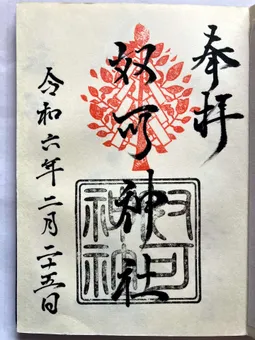 奉拝
奴可神社
令和六年二月二十五日
奴可
神社